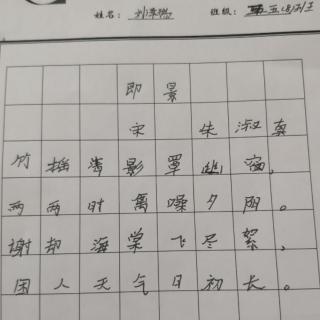 姓名： 班级：
即景
宋 朱淑真
竹摇清影罩幽窗，
两两时禽噪夕阳。
谢却海棠飞尽絮，
困人天气日初长。